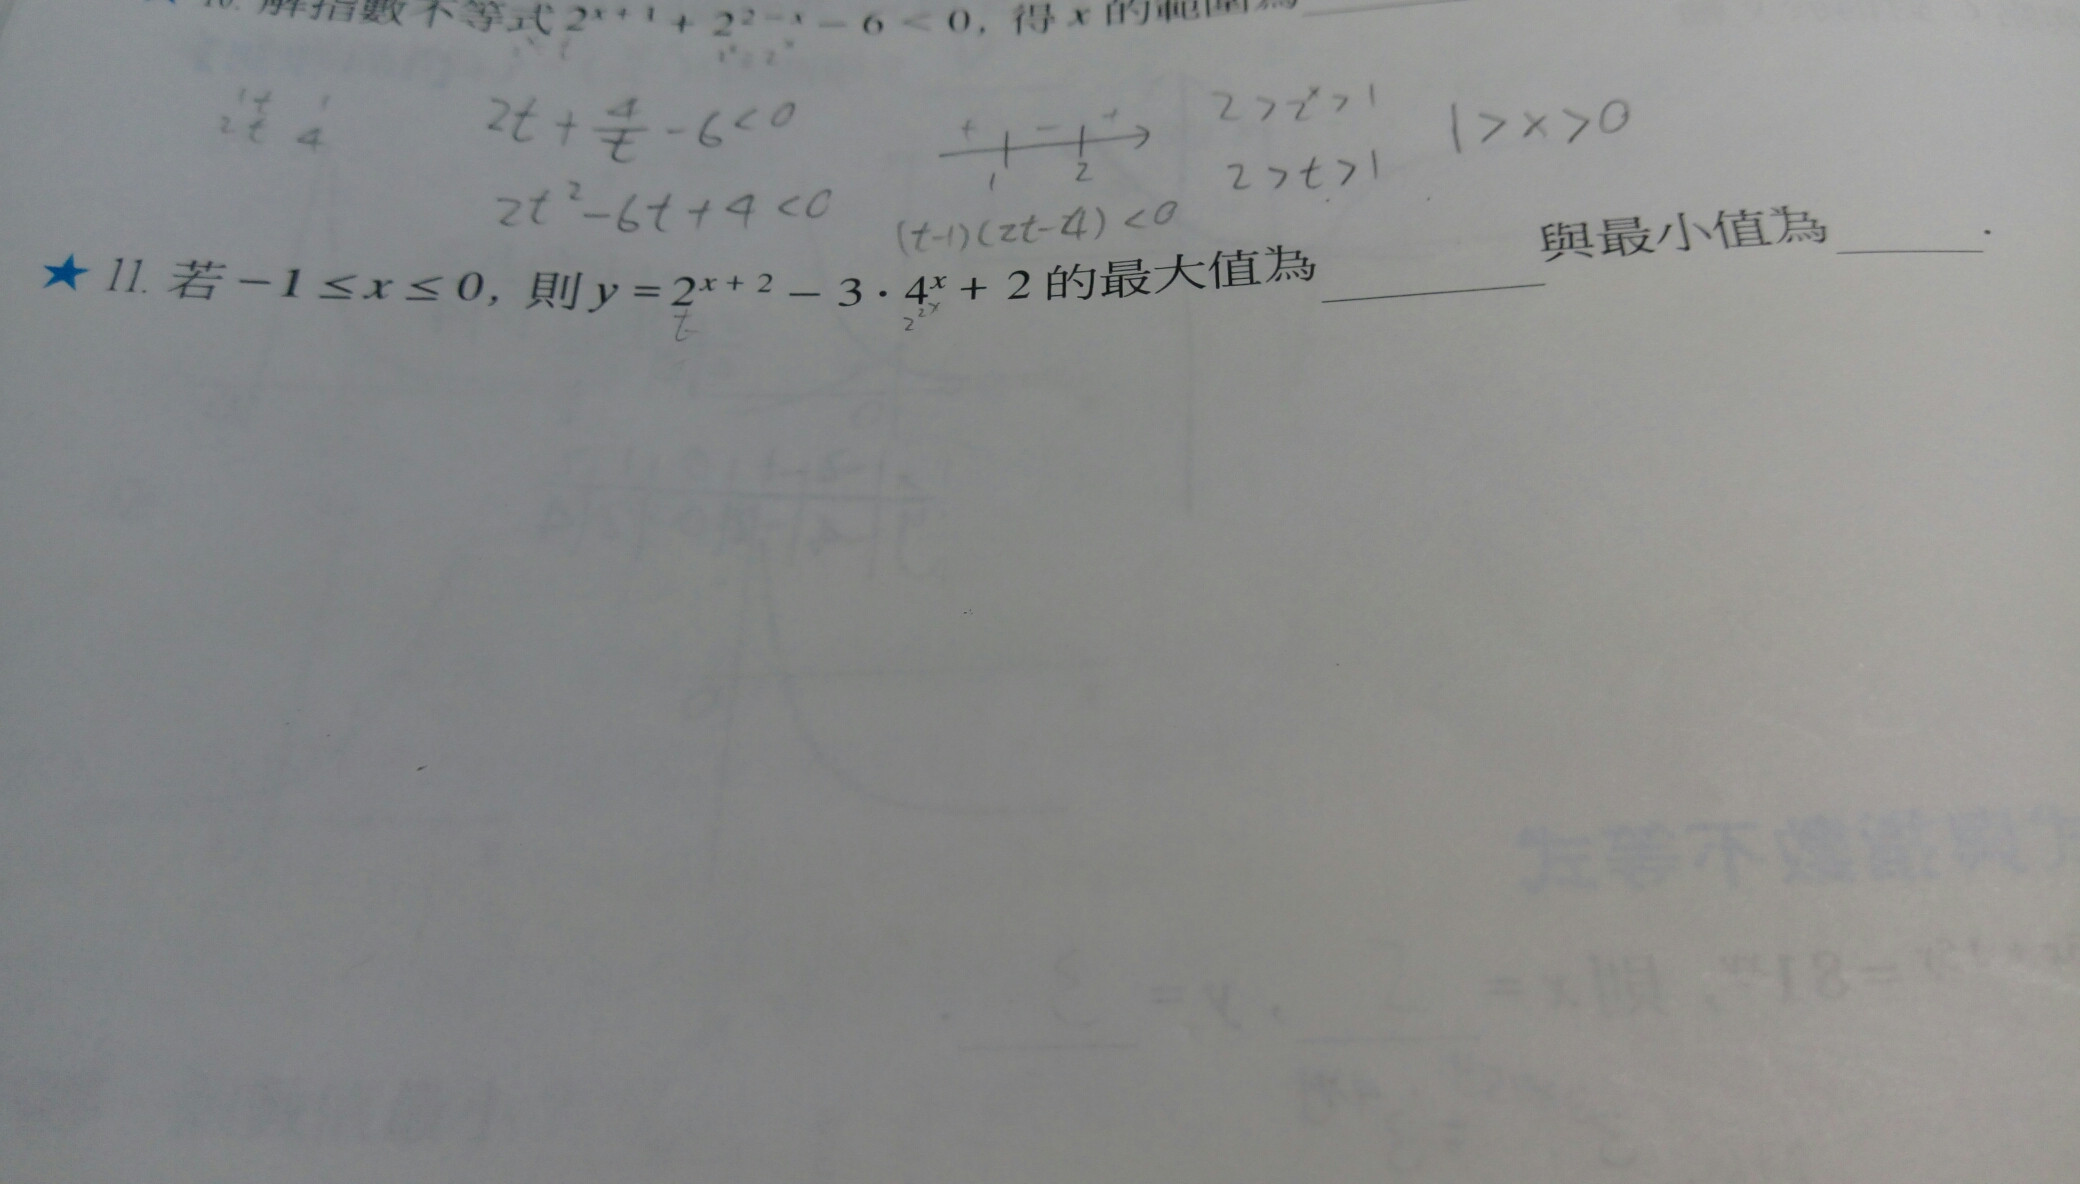 10. 解指數不等式 2^{x+1} + 2^{2-x} - 6 < 0, 得 x 的範圍為
1t 1
2t 4
2t + 4/t - 6 < 0
2t² - 6t + 4 < 0
+ - +
1 2
(t-1)(2t-4) < 0
2 > 2^x > 1
2 > t > 1
1 > x > 0
★ 11. 若 -1 ≤ x ≤ 0, 則 y = 2^{x+2} - 3 · 4^x + 2 的最大值為______與最小值為______.
t 2^{2x}